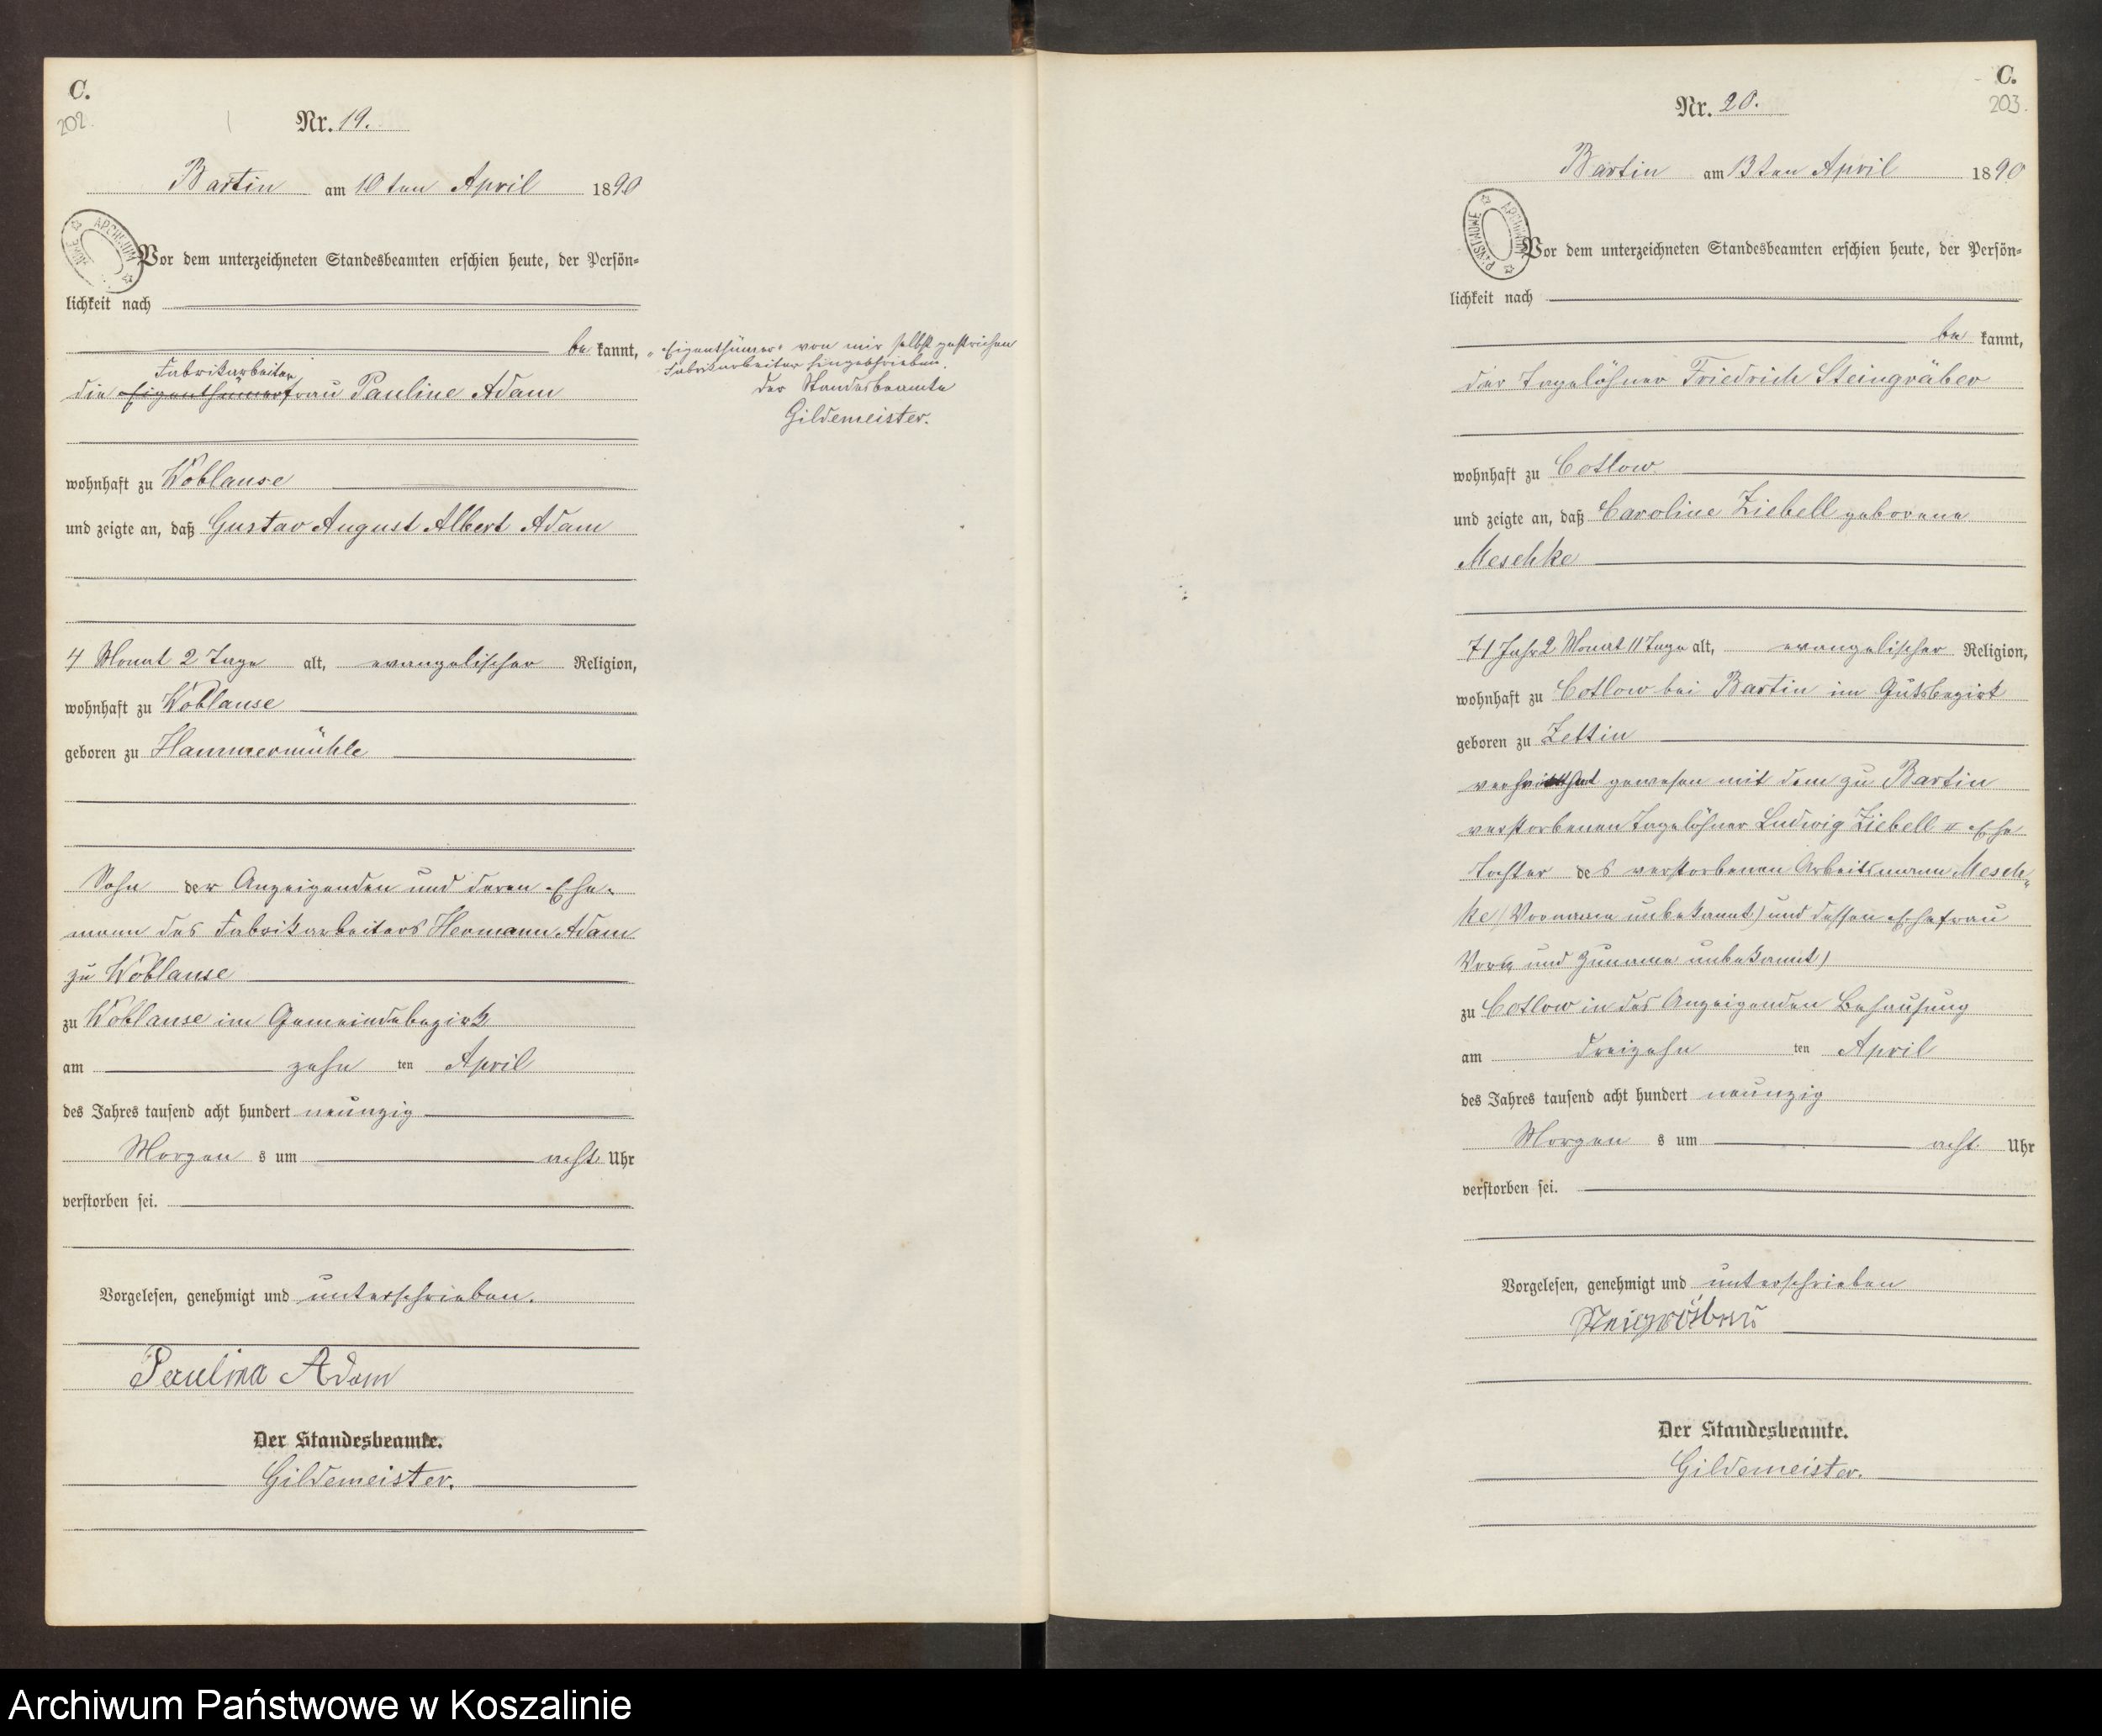 C.
202.
Nr. 19.
Bartin am 10ten April 1890
ARCHIWUM
Vor dem unterzeichneten Standesbeamten erschien heute, der Persön-
lichkeit nach
be kannt,
Fabrikarbeiter
die Eigenthümerfrau Pauline Adam
wohnhaft zu Woblanse
und zeigte an, daß Gustav August Albert Adam
4 Monat 2 Tage alt, evangelischer Religion,
wohnhaft zu Woblanse
geboren zu Hammermühle
Sohn der Anzeigenden und deren Ehe-
mann des Fabrikarbeiters Hermann Adam
zu Woblanse
zu Woblanse im Gemeindebezirk
am zehn ten April
des Jahres tausend acht hundert neunzig
Morgen s um acht Uhr
verstorben sei.
Vorgelesen, genehmigt und unterschrieben.
Paulina Adam
Der Standesbeamte.
Gildemeister.
„Eigenthümer“ von mir selbst gestrichen
Fabrikarbeiter hingeschrieben.
Der Standesbeamte
Gildemeister.
C.
203.
Nr. 20.
Bartin am 13ten April 1890
ARCHIWUM PAŃSTWOWE
Vor dem unterzeichneten Standesbeamten erschien heute, der Persön-
lichkeit nach
be kannt,
der Tagelöhner Friedrich Steingräber
wohnhaft zu Cotlow
und zeigte an, daß Caroline Ziebell geborene
Meschke
71 Jahr 2 Monat 11 Tage alt, evangelischer Religion,
wohnhaft zu Cotlow bei Bartin im Gutsbezirk
geboren zu Zettin
verheirathet gewesen mit dem zu Bartin
verstorbenen Tagelöhner Ludwig Ziebell II Ehe
Tochter des verstorbenen Arbeitsmann Mesch-
ke (Vorname unbekannt) und dessen Ehefrau
Vor und Zuname unbekannt)
zu Cotlow in des Anzeigenden Behausung
am dreizehn ten April
des Jahres tausend acht hundert neunzig
Morgen s um acht Uhr
verstorben sei.
Vorgelesen, genehmigt und unterschrieben
Der Standesbeamte.
Gildemeister.
Archiwum Państwowe w Koszalinie